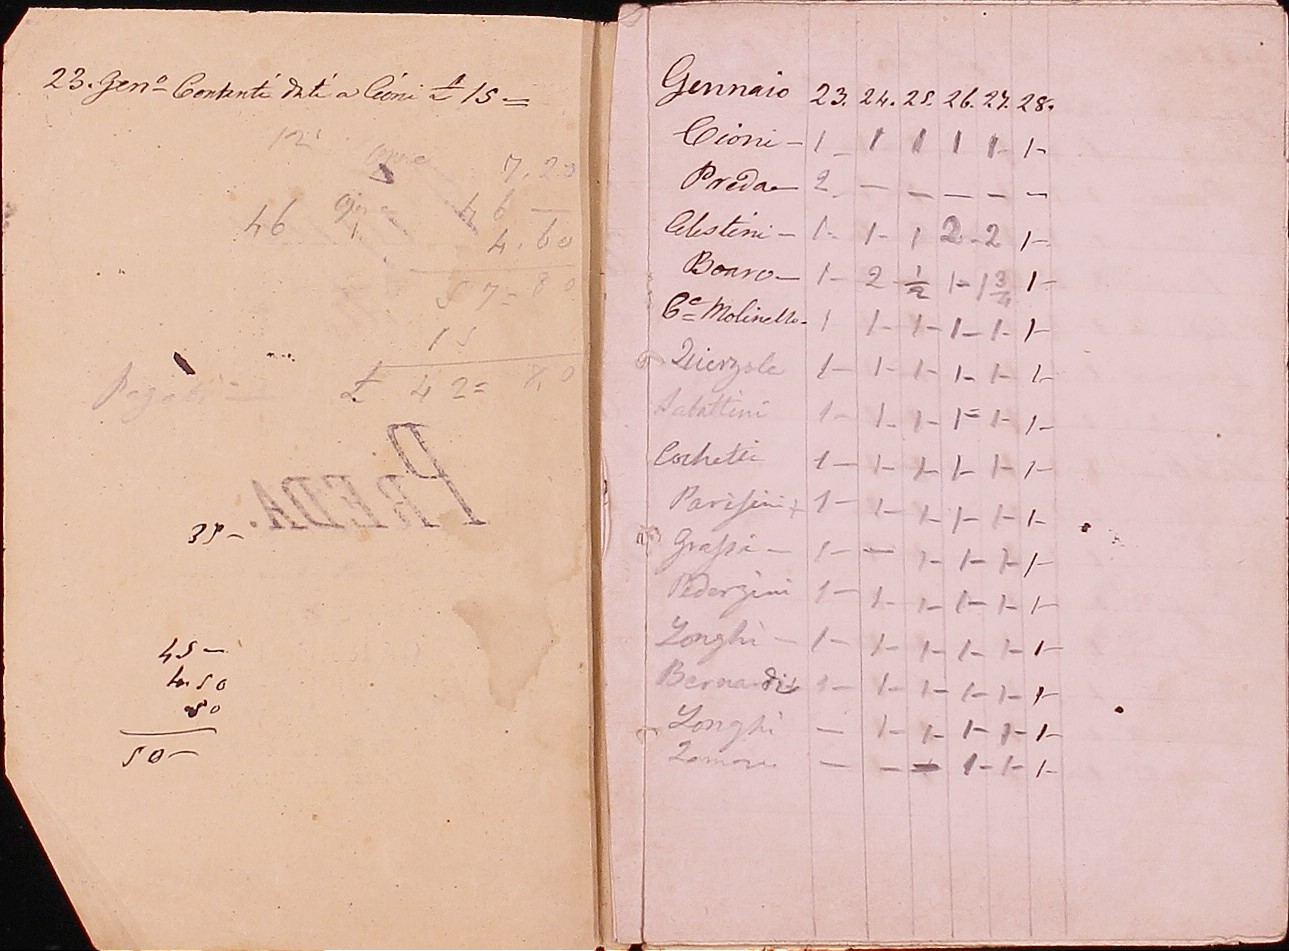 23. Gen.º Contanti dati a Cioni £ 15 =
12
7.20
46 46 —
4.60
57 = 80
15
Pagato — £ 42 = 80
PREDA.
39 —
45 —
4.50
50
50 —
Gennaio 23. 24. 25. 26. 27. 28.
Cioni — 1 — 1 1 1 1 — 1 —
Preda — 2 — — — — —
Celestini — 1 — 1 — 1 2 — 2 1 —
Boaro — 1 — 2 — 1/2 1 — 1 3/4 1 —
C.e Molinello — 1 1 — 1 — 1 — 1 — 1 —
Quierzola 1 — 1 — 1 — 1 — 1 — 1 —
Sabattini 1 — 1 — 1 — 1 = 1 — 1 —
Cochetti 1 — 1 — 1 — 1 — 1 — 1 —
Parisini + 1 — 1 — 1 — 1 — 1 — 1 —
Grassi — 1 — — 1 — 1 — 1 — 1 —
Pederzini 1 — 1 — 1 — 1 — 1 — 1 —
Longhi — 1 — 1 — 1 — 1 — 1 — 1 —
Bernardi + 1 — 1 — 1 — 1 — 1 — 1 —
Longhi — 1 — 1 — 1 — 1 — 1 —
— — — 1 — 1 — 1 —